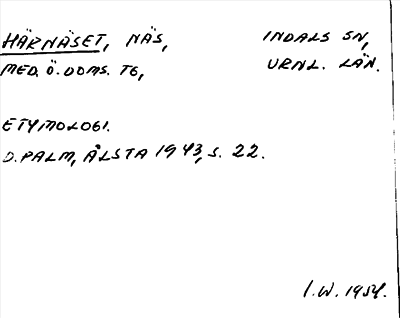 HÄRNÄSET, NÄS, INDALS SN,
MED. Ö. DOMS. TG, VRNL. LÄN.
ETYMOLOGI.
D. PALM, ÅLSTA 1943, S. 22.
I. W. 1954.